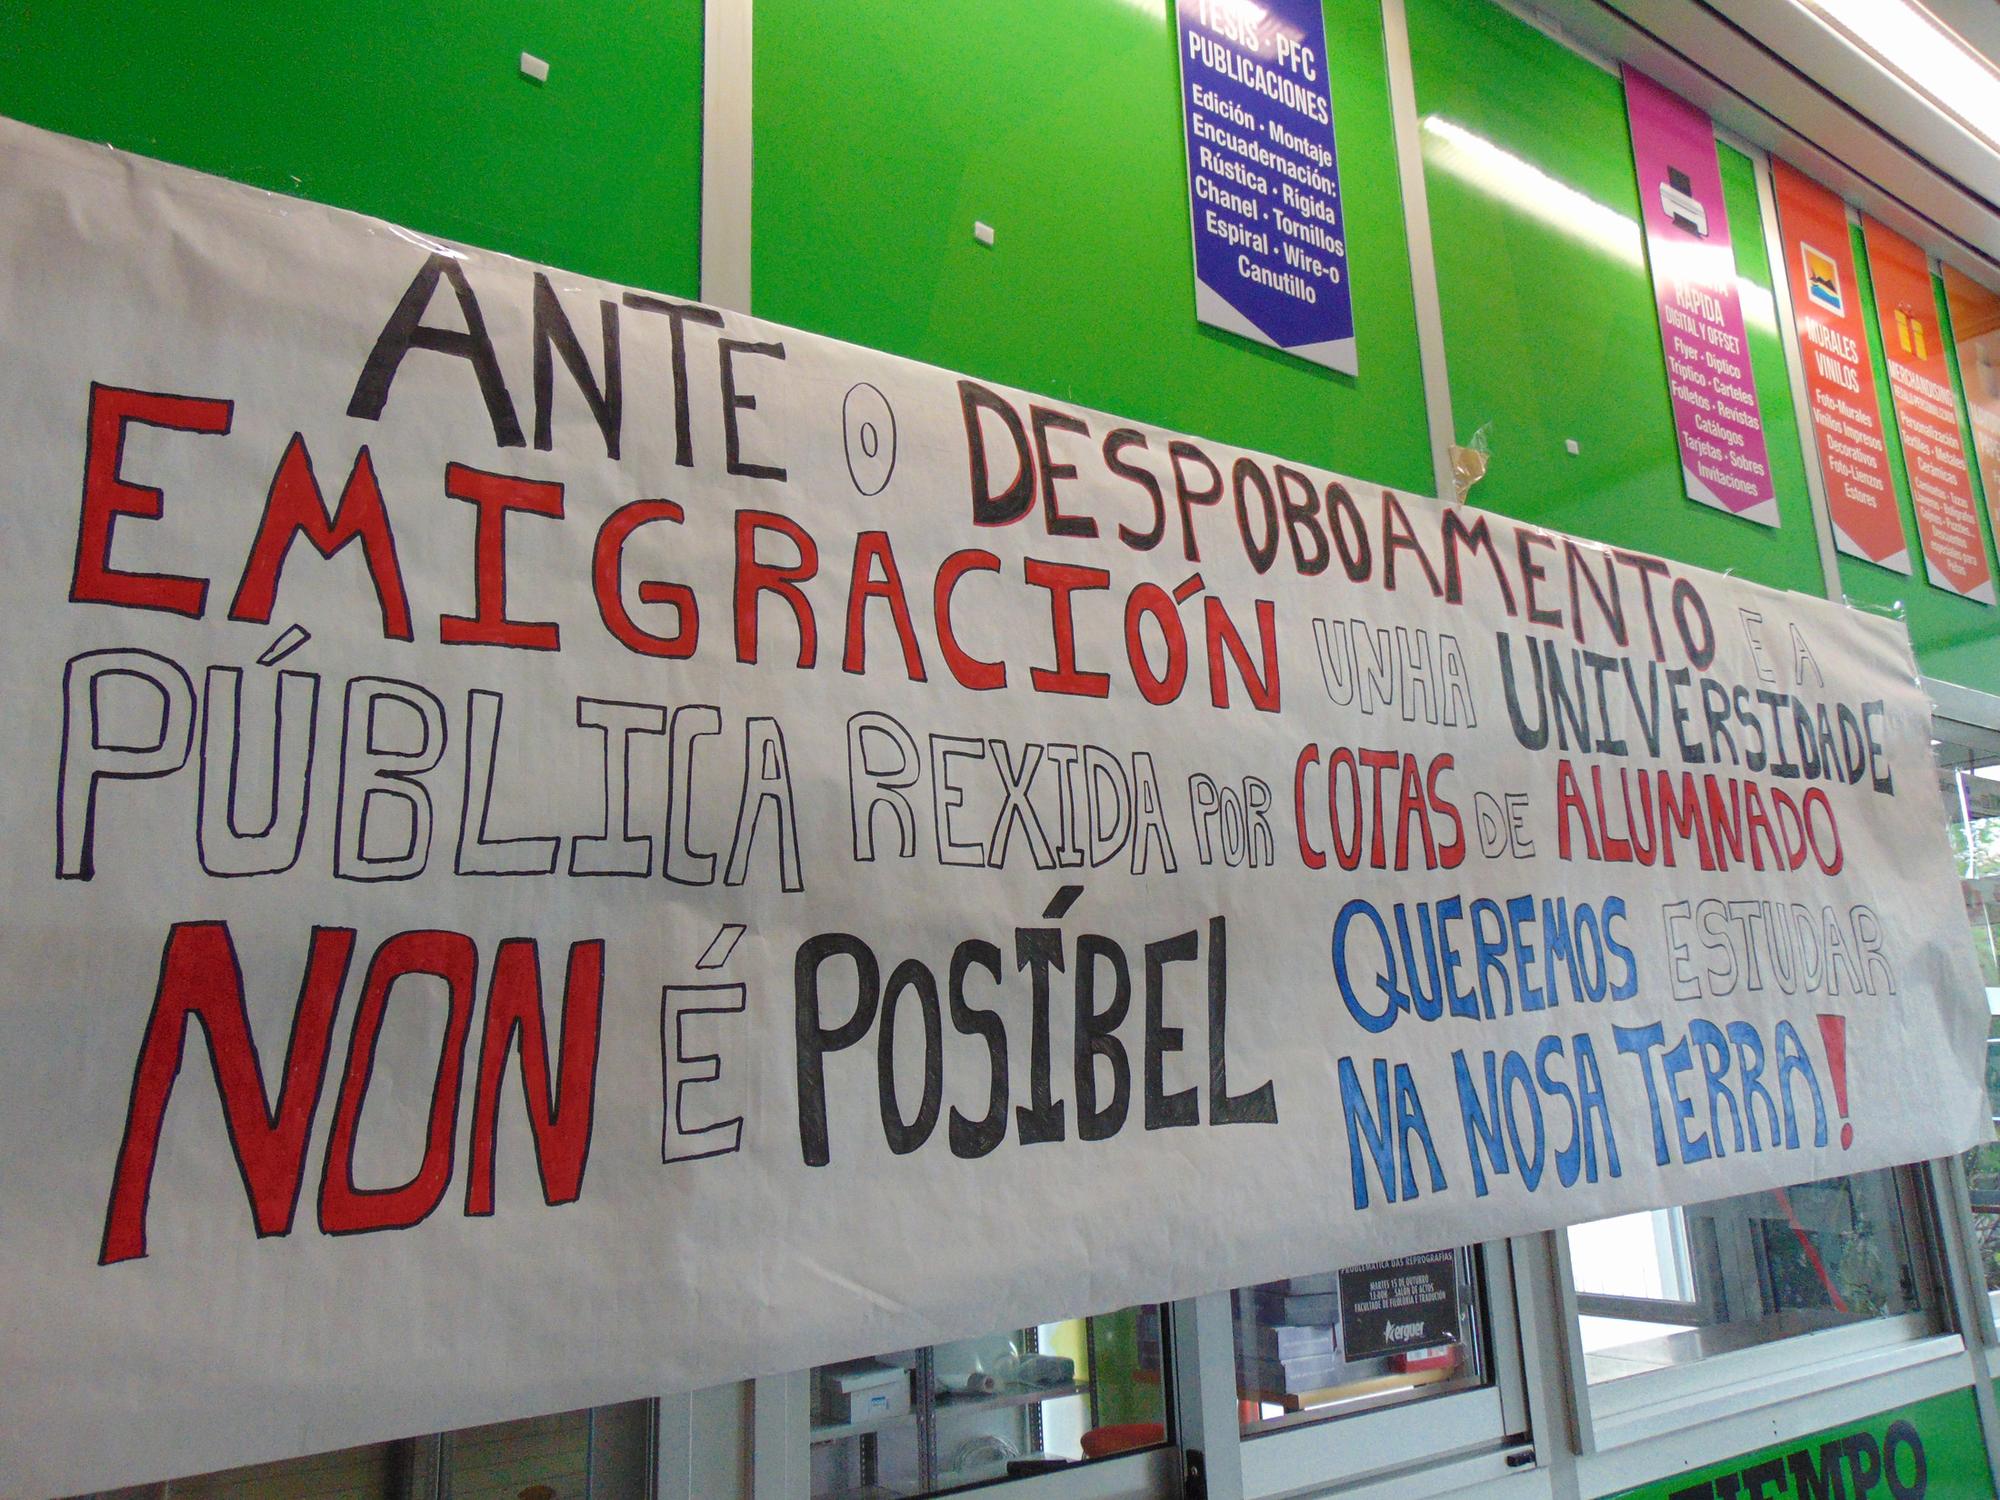 ANTE O DESPOBOAMENTO E A
EMIGRACIÓN UNHA UNIVERSIDADE
PÚBLICA REXIDA POR COTAS DE ALUMNADO
NON É POSÍBEL
QUEREMOS ESTUDAR
NA NOSA TERRA!
TESIS · PFC
PUBLICACIONES
Edición · Montaje
Encuadernación:
Rústica · Rígida
Chanel · Tornillos
Espiral · Wire-o
Canutillo
RÁPIDA
DIGITAL Y OFFSET
Flyer · Díptico
Tríptico · Carteles
Folletos · Revistas
Catálogos
Tarjetas · Sobres
Invitaciones
MURALES
VINILOS
Foto-Murales
Vinilos Impresos
Decorativos
Foto-Lienzos
Estores
MERCHANDISING
REGALO PERSONALIZADO
Personalización
Textiles · Metales
Cerámicas
Camisetas · Tazas
Llaveros · Bolígrafos
Cojines · Puzzles...
Descuentos
especiales para
Peñas
PROBLEMÁTICA DAS REPROGRAFÍAS
MARTES 15 DE OUTUBRO
13:00H SALÓN DE ACTOS
FACULTADE DE FILOLOXÍA E TRADUCIÓN
erguer
TIEMPO